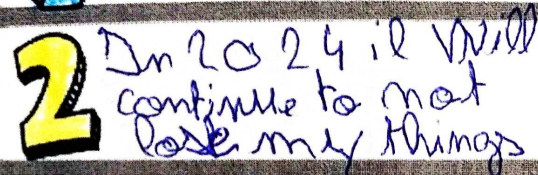 2
In 2024 il Will
continue to not
lose my things